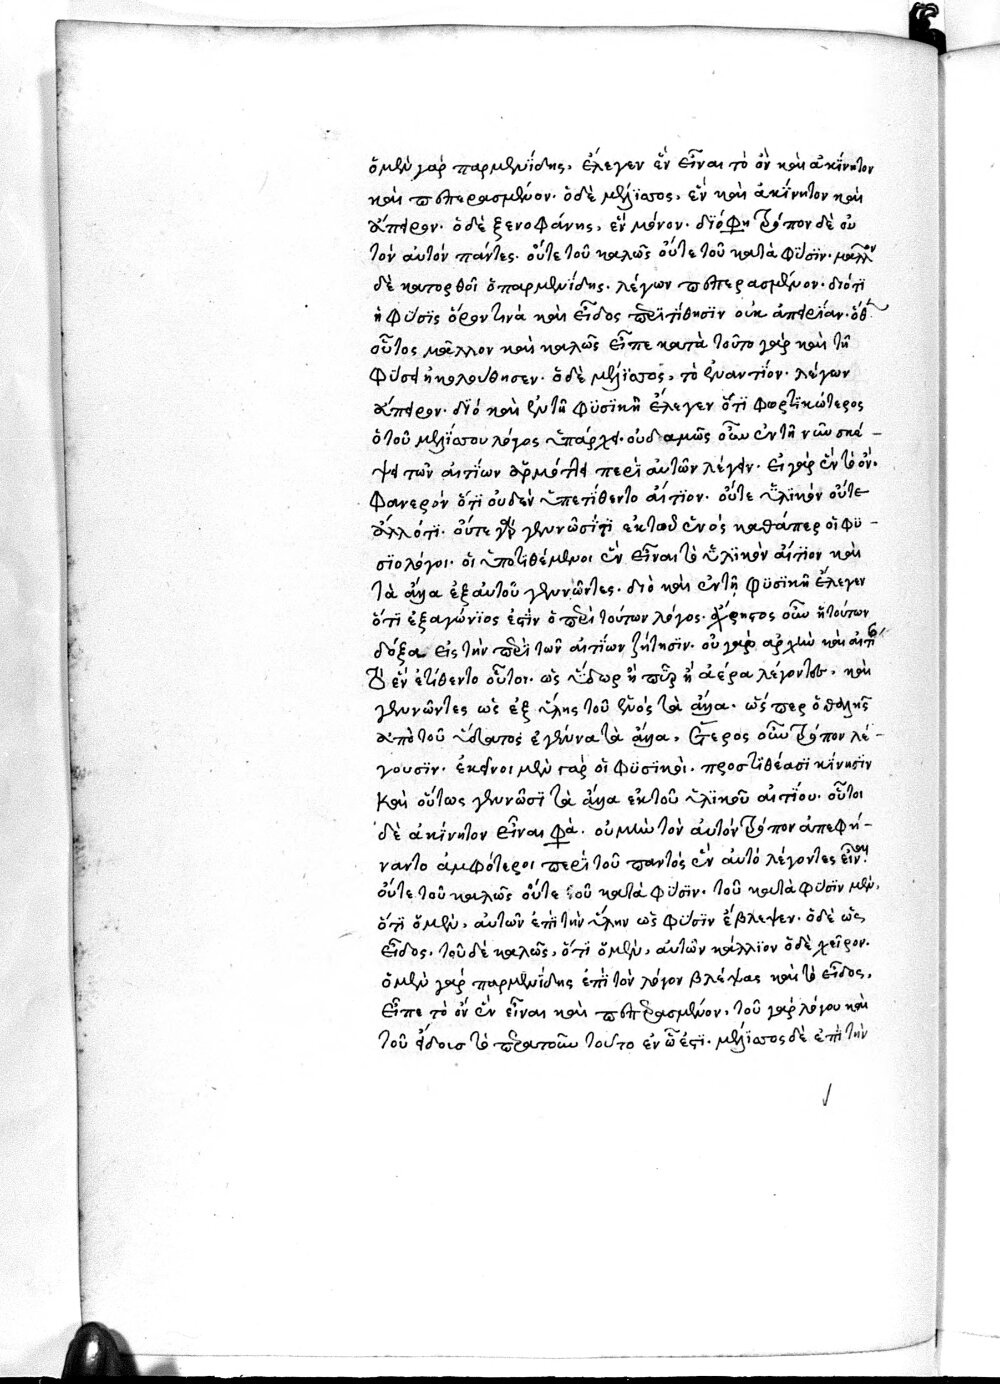 ὁ μὲν γὰρ παρμενίδης, ἔλεγεν ἓν εἶναι τὸ ὂν καὶ ἀκίνητον
καὶ πεπερασμένον· ὁ δὲ μέλισσος, ἓν καὶ ἀκίνητον καὶ
ἄπειρον· ὁ δὲ ξενοφάνης, ἓν μόνον· διό φη τρόπον δὲ οὐ
τὸν αὐτὸν πάντες· οὔτε τοῦ καλῶς οὔτε τοῦ κατὰ φύσιν· μᾶλλον
δὲ κατορθοῖ ὁ παρμενίδης· λέγων πεπερασμένον· διότι
ἡ φύσις ὅρον τινὰ καὶ εἶδος περιτίθησιν οὐκ ἀπειρίαν· ὅθεν
οὗτος μᾶλλον καὶ καλῶς εἶπε κατὰ τοῦτο γὰρ καὶ τῆ
φύσει ἠκολούθησεν· ὁ δὲ μέλισσος, τὸ ἐναντίον· λέγων
ἄπειρον· διὸ καὶ ἐν τῆ φυσικῆ ἔλεγεν ὅτι φορτικώτερος
ὁ τοῦ μελίσσου λόγος ὑπάρχει· οὐδαμῶς οὖν ἐν τῆ νῦν σκέ-
ψει τῶν αἰτίων ἁρμόττει περὶ αὐτῶν λέγειν· εἰ γὰρ ἓν τὸ ὄν·
φανερὸν ὅτι οὐδὲν ὑπετίθεντο αἴτιον· οὔτε ὑλικὸν οὔτε
ἄλλό τι· οὔτε γεννῶσί τι ἐκ τοῦ ἑνὸς καθάπερ οἱ φυ-
σιολόγοι· οἱ ὑποτιθέμενοι ἓν εἶναι τὸ ὑλικὸν αἴτιον καὶ
τὰ ἄλλα ἐξ αὐτοῦ γεννῶντες· διὸ καὶ ἐν τῆ φυσικῆ ἔλεγεν
ὅτι ἐξαγώνιος ἐστὶν ὁ περὶ τούτων λόγος· ἄχρηστος οὖν ἡ τούτων
δόξα εἰς τὴν περὶ τῶν αἰτίων ζήτησιν· οὐ γὰρ ἀρχὴν καὶ αἴτιον
τὸ ἓν ἐτίθεντο οὗτοι· ὡς ὕδωρ ἢ πῦρ ἢ ἀέρα λέγοντες, καὶ
γεννῶντες ὡς ἐξ ὕλης τοῦ ἑνὸς τὰ ἄλλα· ὥσπερ ὁ θαλῆς
ἀπὸ τοῦ ὕδατος ἐγέννα τὰ ἄλλα, ἕτερος οὖν τρόπον λέ-
γουσιν· ἐκεῖνοι μὲν γὰρ οἱ φυσικοὶ· προστιθέασι κίνησιν
καὶ οὕτως γεννῶσι τὰ ἄλλα ἐκ τοῦ ὑλικοῦ αἰτίου· οὗτοι
δὲ ἀκίνητον εἶναι φα· οὐ μὴν τὸν αὐτὸν τρόπον ἀπεφή-
ναντο ἀμφότεροι περὶ τοῦ παντὸς ἓν αὐτὸ λέγοντες εἶναι
οὔτε τοῦ καλῶς οὔτε τοῦ κατὰ φύσιν· τοῦ κατὰ φύσιν μὲν,
ὅτι ὁ μὲν, αὐτῶν ἐπὶ τὴν ὕλην ὡς φύσιν ἔβλεψεν· ὁ δὲ ὡς
εἶδος, τοῦ δὲ καλῶς, ὅτι ὁ μὲν, αὐτῶν κάλλιον ὁ δὲ χεῖρον·
ὁ μὲν γὰρ παρμενίδης ἐπὶ τὸν λόγον βλέψας καὶ τὸ εἶδος,
εἶπε τὸ ὂν ἓν εἶναι καὶ πεπερασμένον, τοῦ γὰρ λόγου καὶ
τοῦ εἴδους τὸ περατοῦν τοῦτο ἐν ᾧ ἐστι· μέλισσος δὲ ἐπὶ τὴν